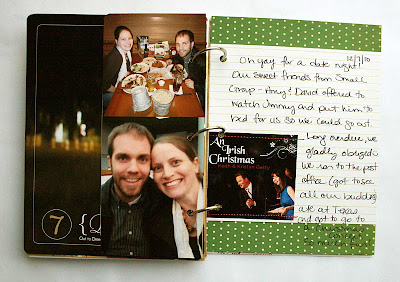 7
{D
12/7/10
Oh yay for a date night!
Our sweet friends from Small
Group - Amy & David offered to
watch Jimmy and put him to
bed for us so we could go out.
Long overdue, we
gladly obliged!
we ran to the post
office (got to see
all our buddies)
ate at Texas
and got to go to
An
Irish
Christmas
Keith & Kristyn Getty